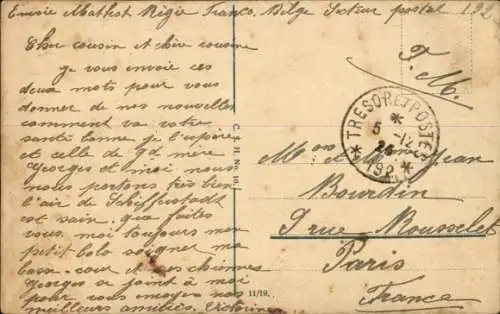 Envoie Mathot Régie Franco. Belge Secteur postal 192
Cher cousin et chère cousine
je vous envoie ces
deux mots pour vous
donner de nos nouvelles
comment va votre
santé bonne je l'espère
et celle de gd mère
Georges et moi nous
nous portons très bien
l'air de Schifferstadt
est sain, que faites
vous moi toujours mon
petit bolo soigner ma
basse-cour et mes chiennes
Georges se joint à moi
pour vous envoyer nos
meilleurs amitiés, Victorine
C. & H. No.
11/19.
F. M.
TRESOR ET POSTES
5 -12
192
et Jean
Bourdin
9 rue Rousselet
Paris
France